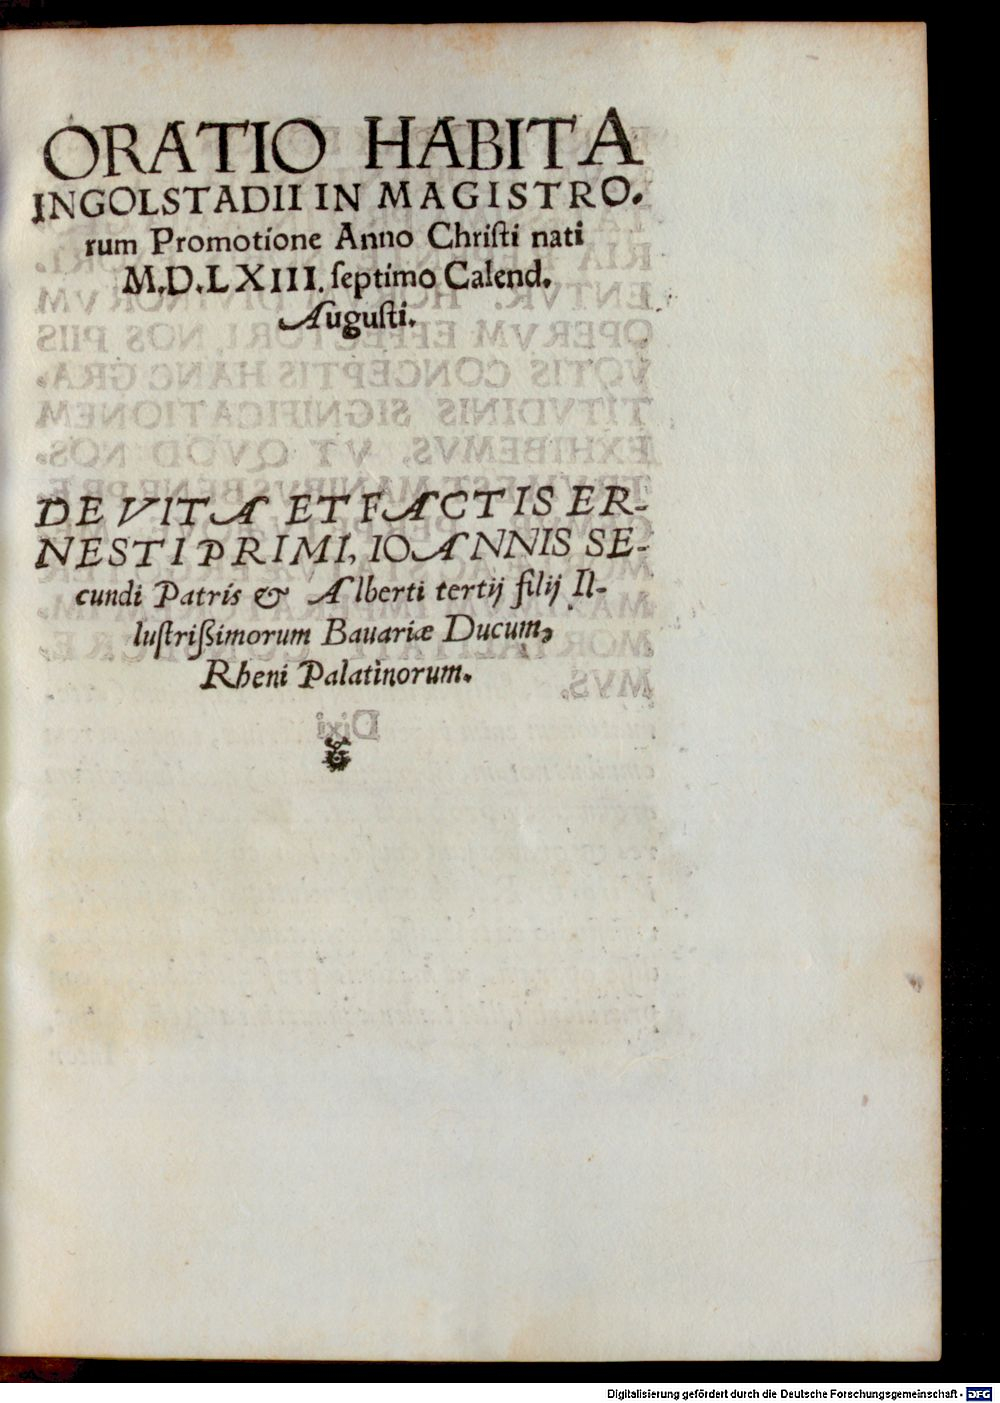 ORATIO HABITA
INGOLSTADII IN MAGISTRO.
rum Promotione Anno Chriſti nati
M.D.LXIII. ſeptimo Calend.
Auguſti.
DE VITA ET FACTIS ER-
NESTI PRIMI, IOANNIS SE-
cundi Patris & Alberti tertij filij Il-
luſtriſſimorum Bauariæ Ducum,
Rheni Palatinorum.
Digitalisierung gefördert durch die Deutsche Forschungsgemeinschaft - DFG